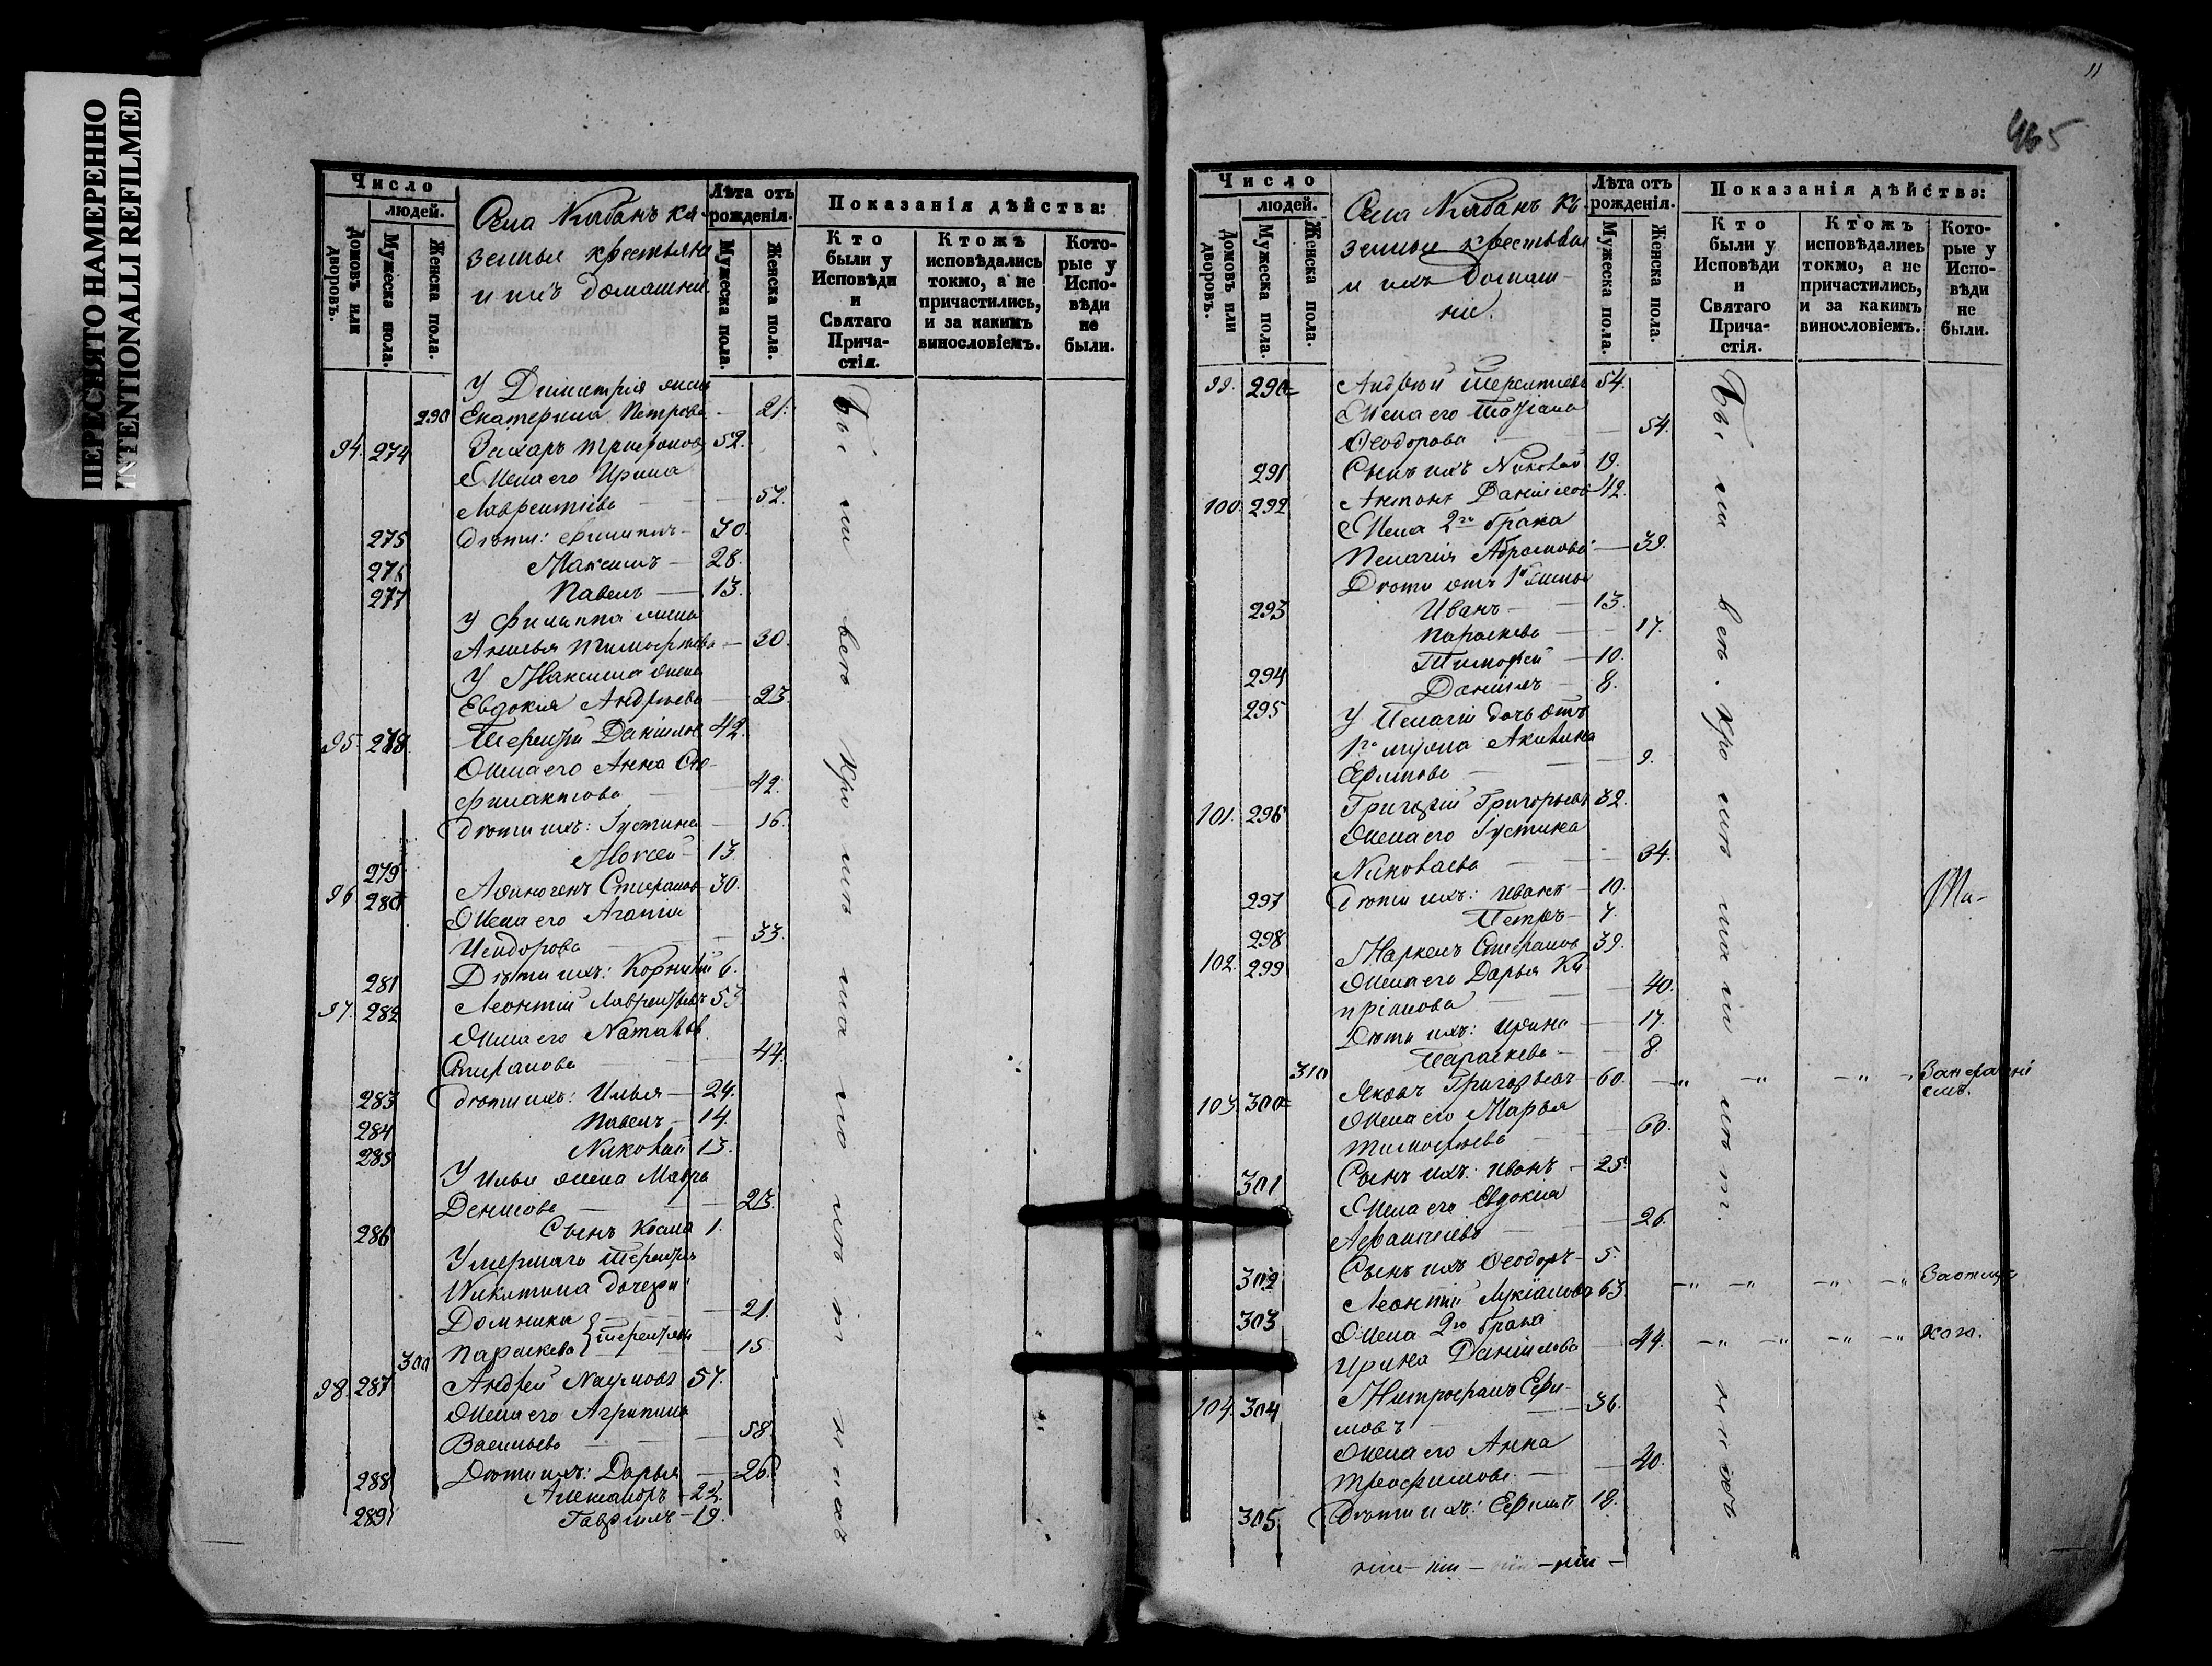 ПЕРЕСНЯТО НАМЕРЕННО
INTENTIONALLI REFILMED
Число
людей.
Домовъ или дворовъ.
Мужеска пола.
Женска пола.
Села Кабанъ ка-
зенныя крестьяне
и ихъ домашніи
Лѣта отъ рожденія.
Мужеска пола.
Женска пола.
Показанія дѣйства:
Кто были у Исповѣди и Святаго Прича-стія.
Ктожъ исповѣдались токмо, а не причастились, и за какимъ винословіемъ.
Кото-рые у Испо-вѣди не были.
У Димитрія жена
290 Екатерина Петрова 21.
94. 274 Захаръ Трифоновъ 52.
Жена его Ирина
Лаврентіева 52.
275 Дѣти: Филиппъ 30.
276 Максимъ 28.
277 Павелъ 13.
У Филиппа жена
Тимофѣева 30.
У Максима жена
Евдокия Андреева 23.
95. 278 Терентій Даніиловъ 42.
Жена его Анна Ѳео-
филактова 42.
Дѣти ихъ: Іустина 16.
279 Моисей 13.
96 280 Аѳиногенъ Стефановъ 30.
Жена его Агапія
Исидорова 33.
281 Дѣти ихъ: Корнилій 6.
97. 282 Леонтій Лаврентьевъ 53.
Жена его Наталія
Стефанова 44.
283 Дѣти ихъ: Илья 24.
284 Павелъ 14.
285 Николай 13.
У Ильи жена Мавра
Денисова 23.
286 Сынъ Косма 1.
Умершаго Терентія
Никитина дочери:
Домника 21.
Терентьевы
300 Параскева 15.
98. 287 Андрей Наумовъ 57.
Жена его Агрипина
Васильева 58.
Дѣти ихъ: Дарья 26.
288 Александръ 22.
289 Гавріилъ 19.
Бы ли всѣ кро мѣ ма ло лѣ т н ихъ
11
465
Число
людей.
Домовъ или дворовъ.
Мужеска пола.
Женска пола.
Села Кабанъ ка-
зенныя крестьяне
и ихъ домаш-
ніе.
Лѣта отъ рожденія.
Мужеска пола.
Женска пола.
Показанія дѣйства:
Кто были у Исповѣди и Святаго Прича-стія.
Ктожъ исповѣдались токмо, а не причастились, и за какимъ винословіемъ.
Кото-рые у Испо-вѣди не были.
99. 290 Андрей Терентіевъ 54.
Жена его Татіана
Ѳеодорова 54.
291 Сынъ ихъ Николай 19.
100. 292 Антонъ Даніиловъ 42.
Жена 2го брака
Пелагія Абрамова 39.
Дѣти отъ 1й жены
293 Иванъ 13.
Параскева 17.
294 Тимофей 10.
295 Даніилъ 8.
У Пелагіи дочь отъ
1го мужа Акилина
9.
101. 296 Григорій Григорьевъ 32.
Жена его Іустина
Николаева 34.
297 Дѣти ихъ: Иванъ 10.
298 Петръ 7.
102. 299 Маркелъ Стефановъ 39.
Жена его Дарья Ки-
пріянова 40.
Дѣти ихъ: Ирина 17.
310 Параскева 8.
103. 300 Яковъ Григорьевъ 60.
Жена его Марья
Тимофѣева 60.
301 Сынъ ихъ: Иванъ 25.
Жена его Евдокія
26.
302 Сынъ ихъ Ѳеодоръ 5.
303 Леонтій Лукіановъ 63.
Жена 2го брака
Ирина Даніилова 44.
104. 304 Митрофанъ Ефи-
мовъ 36.
Жена его Анна
Трофимова 40.
305 Дѣти ихъ: Ефимъ 18.
Бы ли всѣ кро мѣ ма ло лѣ т. н и хъ.